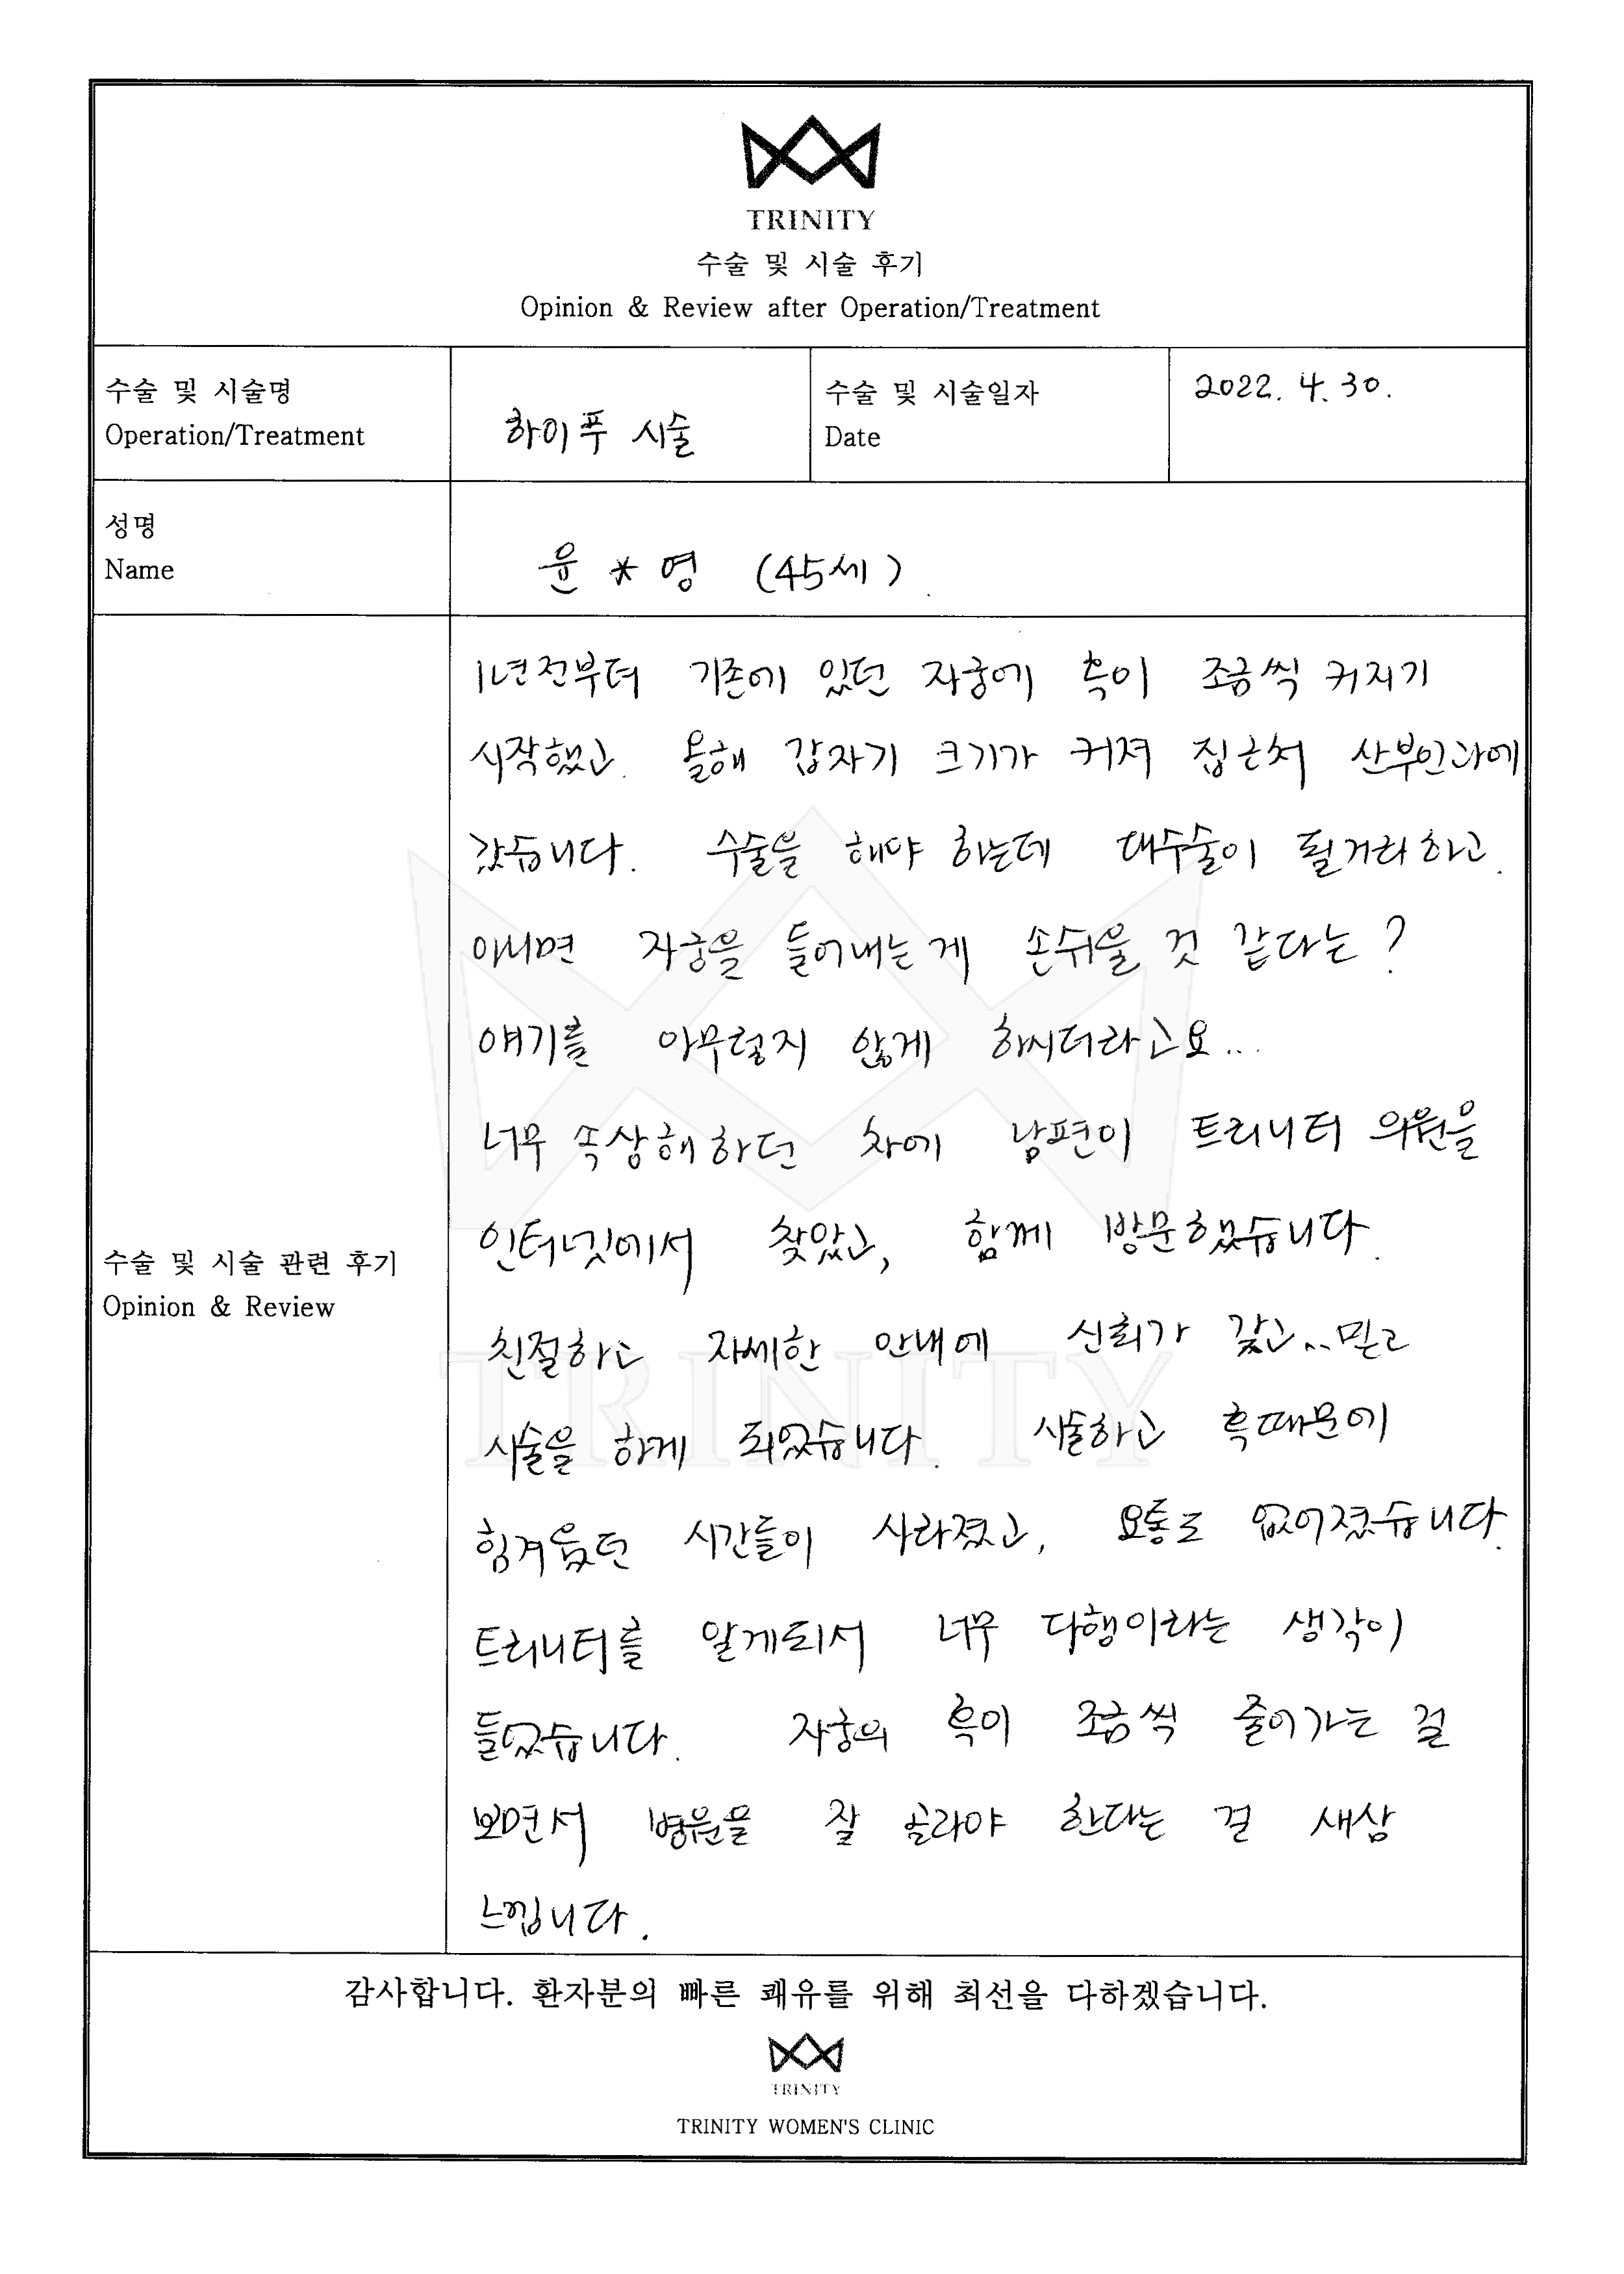 TRINITY
수술 및 시술 후기
Opinion & Review after Operation/Treatment
수술 및 시술명
Operation/Treatment
하이푸 시술
수술 및 시술일자
Date
2022. 4. 30.
성명
Name
윤 * 영 (45세)
수술 및 시술 관련 후기
Opinion & Review
1년전부터 기존에 있던 자궁에 혹이 조금씩 커지기
시작했고. 올해 갑자기 크기가 커져 집근처 산부인과에
갔습니다. 수술을 해야 하는데 대수술이 될거라하고.
아니면 자궁을 들어내는게 손쉬울 것 같다는?
얘기를 아무렇지 않게 하시더라고요...
너무 속상해하던 차에 남편이 트리니티 의원을
인터넷에서 찾았고, 함께 방문했습니다.
친절하고 자세한 안내에 신뢰가 갔고..믿고
시술을 하게 되었습니다. 시술하고 혹때문에
힘겨웠던 시간들이 사라졌고, 요통도 없어졌습니다.
트리니티를 알게되서 너무 다행이라는 생각이
들었습니다. 자궁의 혹이 조금씩 줄어가는 걸
보면서 병원을 잘 골라야 한다는 걸 새삼
느낍니다.
감사합니다. 환자분의 빠른 쾌유를 위해 최선을 다하겠습니다.
TRINITY
TRINITY WOMEN'S CLINIC
TRINITY